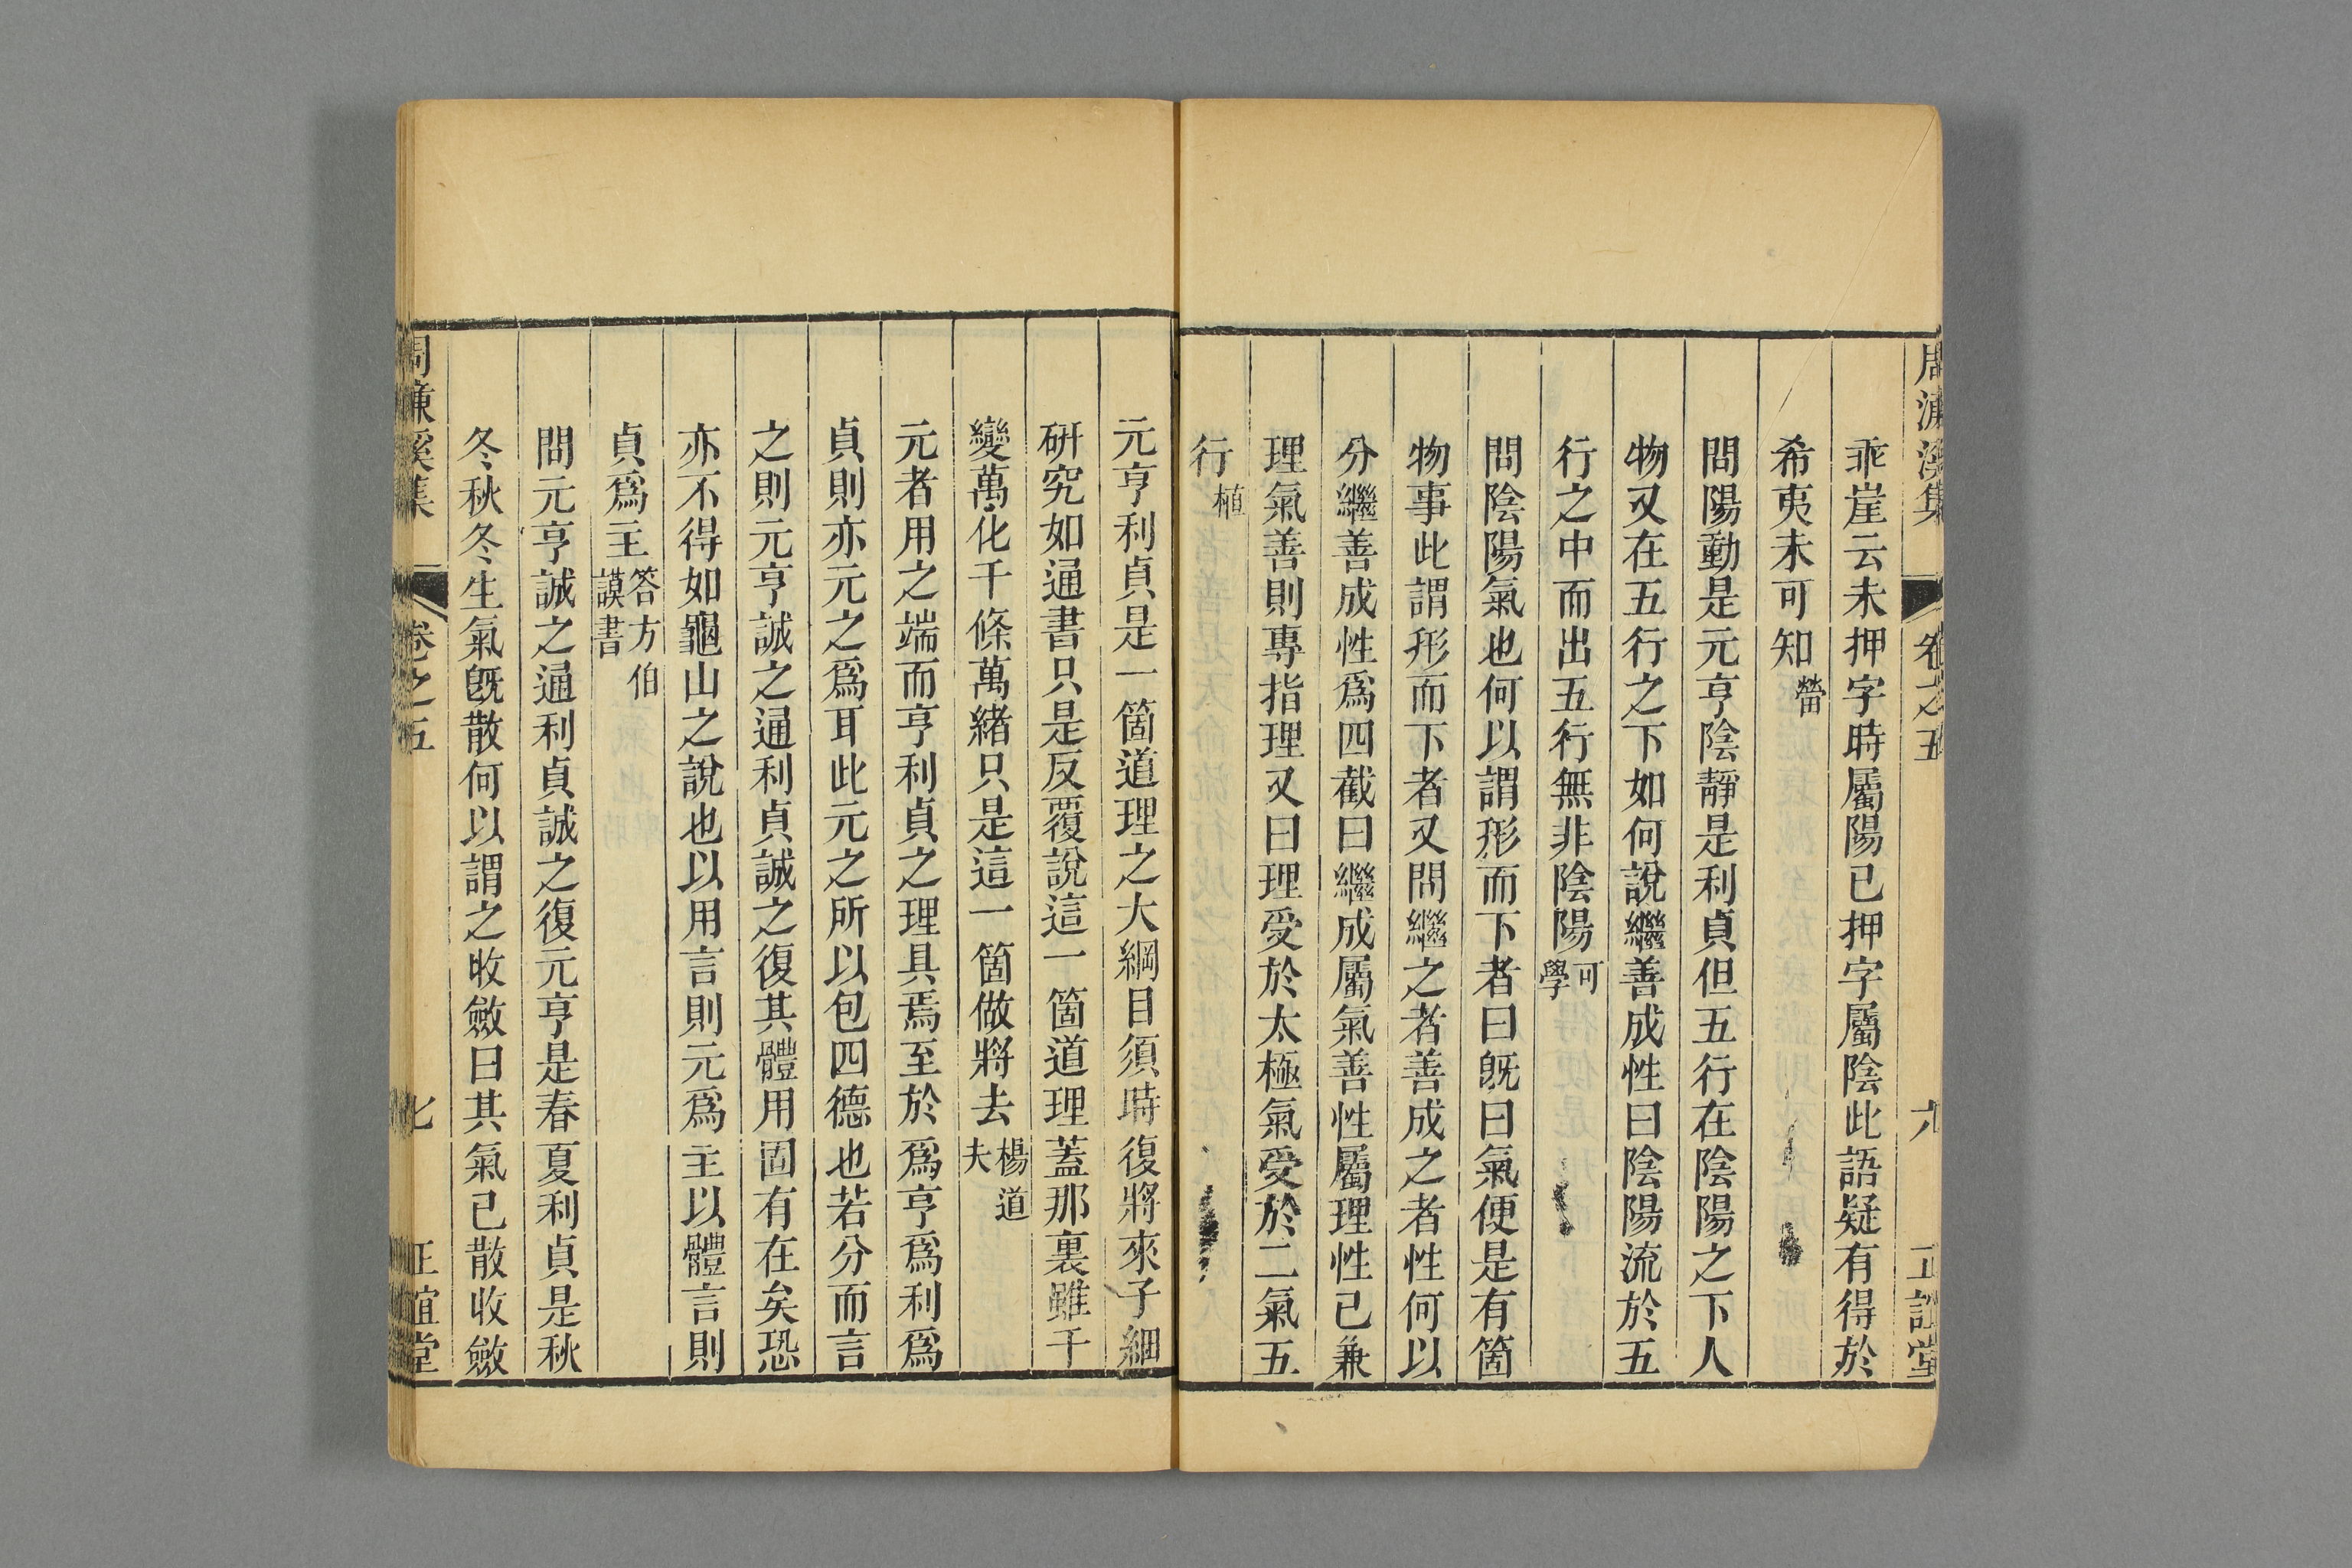 周濂溪集 卷之五 六 正誼堂
乖崖云未押字時屬陽已押字屬陰此語疑有得於
希夷未可知㽦
問陽動是元亨陰靜是利貞但五行在陰陽之下人
物又在五行之下如何說繼善成性曰陰陽流於五
行之中而出五行無非陰陽可學
問陰陽氣也何以謂形而下者曰既曰氣便是有箇
物事此謂形而下者又問繼之者善成之者性何以
分繼善成性爲四截曰繼成屬氣善性屬理性已兼
理氣善則專指理又曰理受於太極氣受於二氣五
行植
元亨利貞是一箇道理之大綱目須時復將來子細
研究如通書只是反覆說這一箇道理蓋那裏雖千
變萬化千條萬緒只是這一箇做將去楊道夫
元者用之端而亨利貞之理具焉至於爲亨爲利爲
貞則亦元之爲耳此元之所以包四德也若分而言
之則元亨誠之通利貞誠之復其體用固有在矣恐
亦不得如龜山之說也以用言則元爲主以體言則
貞爲主答方伯謨書
問元亨誠之通利貞誠之復元亨是春夏利貞是秋
冬秋冬生氣既散何以謂之收斂曰其氣已散收斂
周濂溪集 卷之五 七 正誼堂